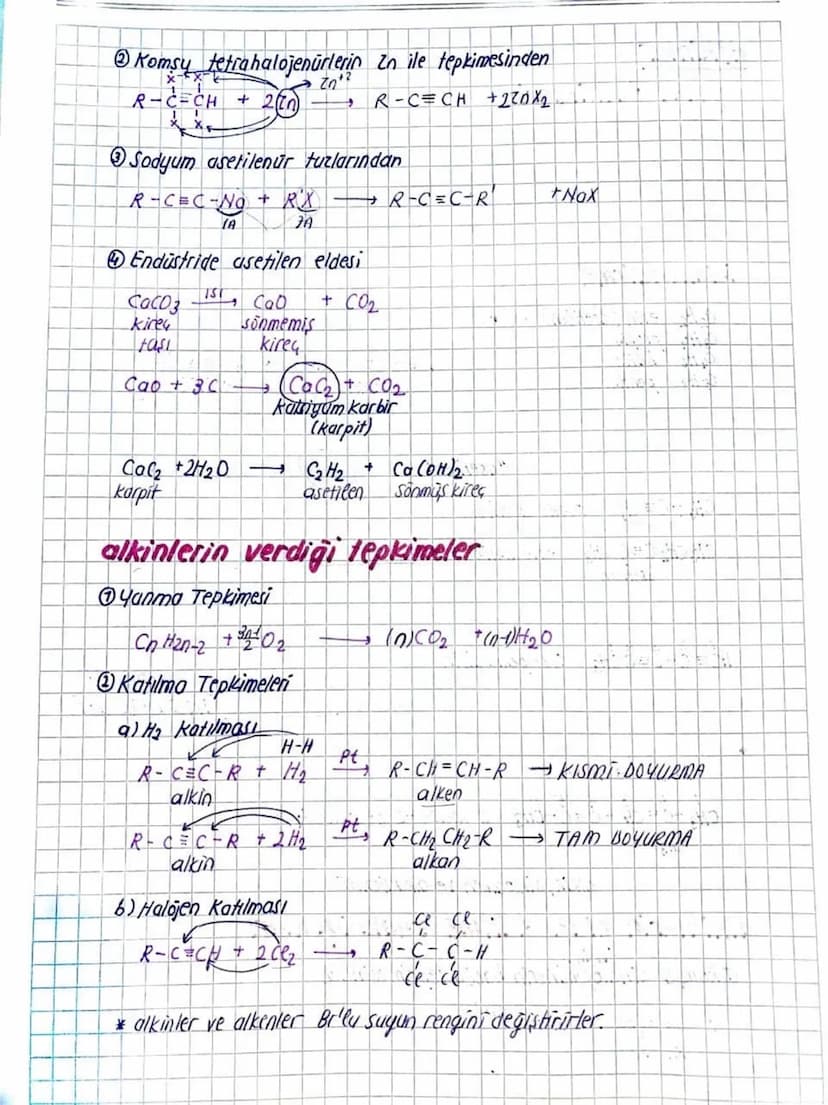 ② Komşu tetrahalojenürlerin Zn ile tepkimesinden
X X Zn⁺²
R-C=CH + 2Zn → R-C≡CH +2ZnX₂
X X
③ Sodyum asetilenür tuzlarından
R-C≡C-Na + R'X → R-C≡C-R' +NaX
1A 7A
④ Endüstride asetilen eldesi
CaCO₃ ısı→ CaO + CO₂
kireç sönmemiş
taşı kireç
CaO + 3C → CaC₂ + CO₂
kalsiyum karbir
(karpit)
CaC₂ +2H₂O → C₂H₂ + Ca(OH)₂
karpit asetilen sönmüş kireç
alkinlerin verdiği tepkimeler
① Yanma Tepkimesi
CnH2n-2 + 3n-1/2 O₂ → (n)CO₂ +(n-1)H₂O
② Katılma Tepkimeleri
a) H₂ Katılması
H-H
R-C≡C-R + H₂ Pt→ R-CH=CH-R → KISMİ DOYURMA
alkin alken
R-C≡C-R + 2H₂ Pt→ R-CH₂ CH₂-R → TAM DOYURMA
alkin alkan
b) Halojen Katılması
Cl Cl
R-C≡CH + 2Cl₂ → R-C-C-H
Cl Cl
* alkinler ve alkenler Br'lu suyun rengini değiştirirler.